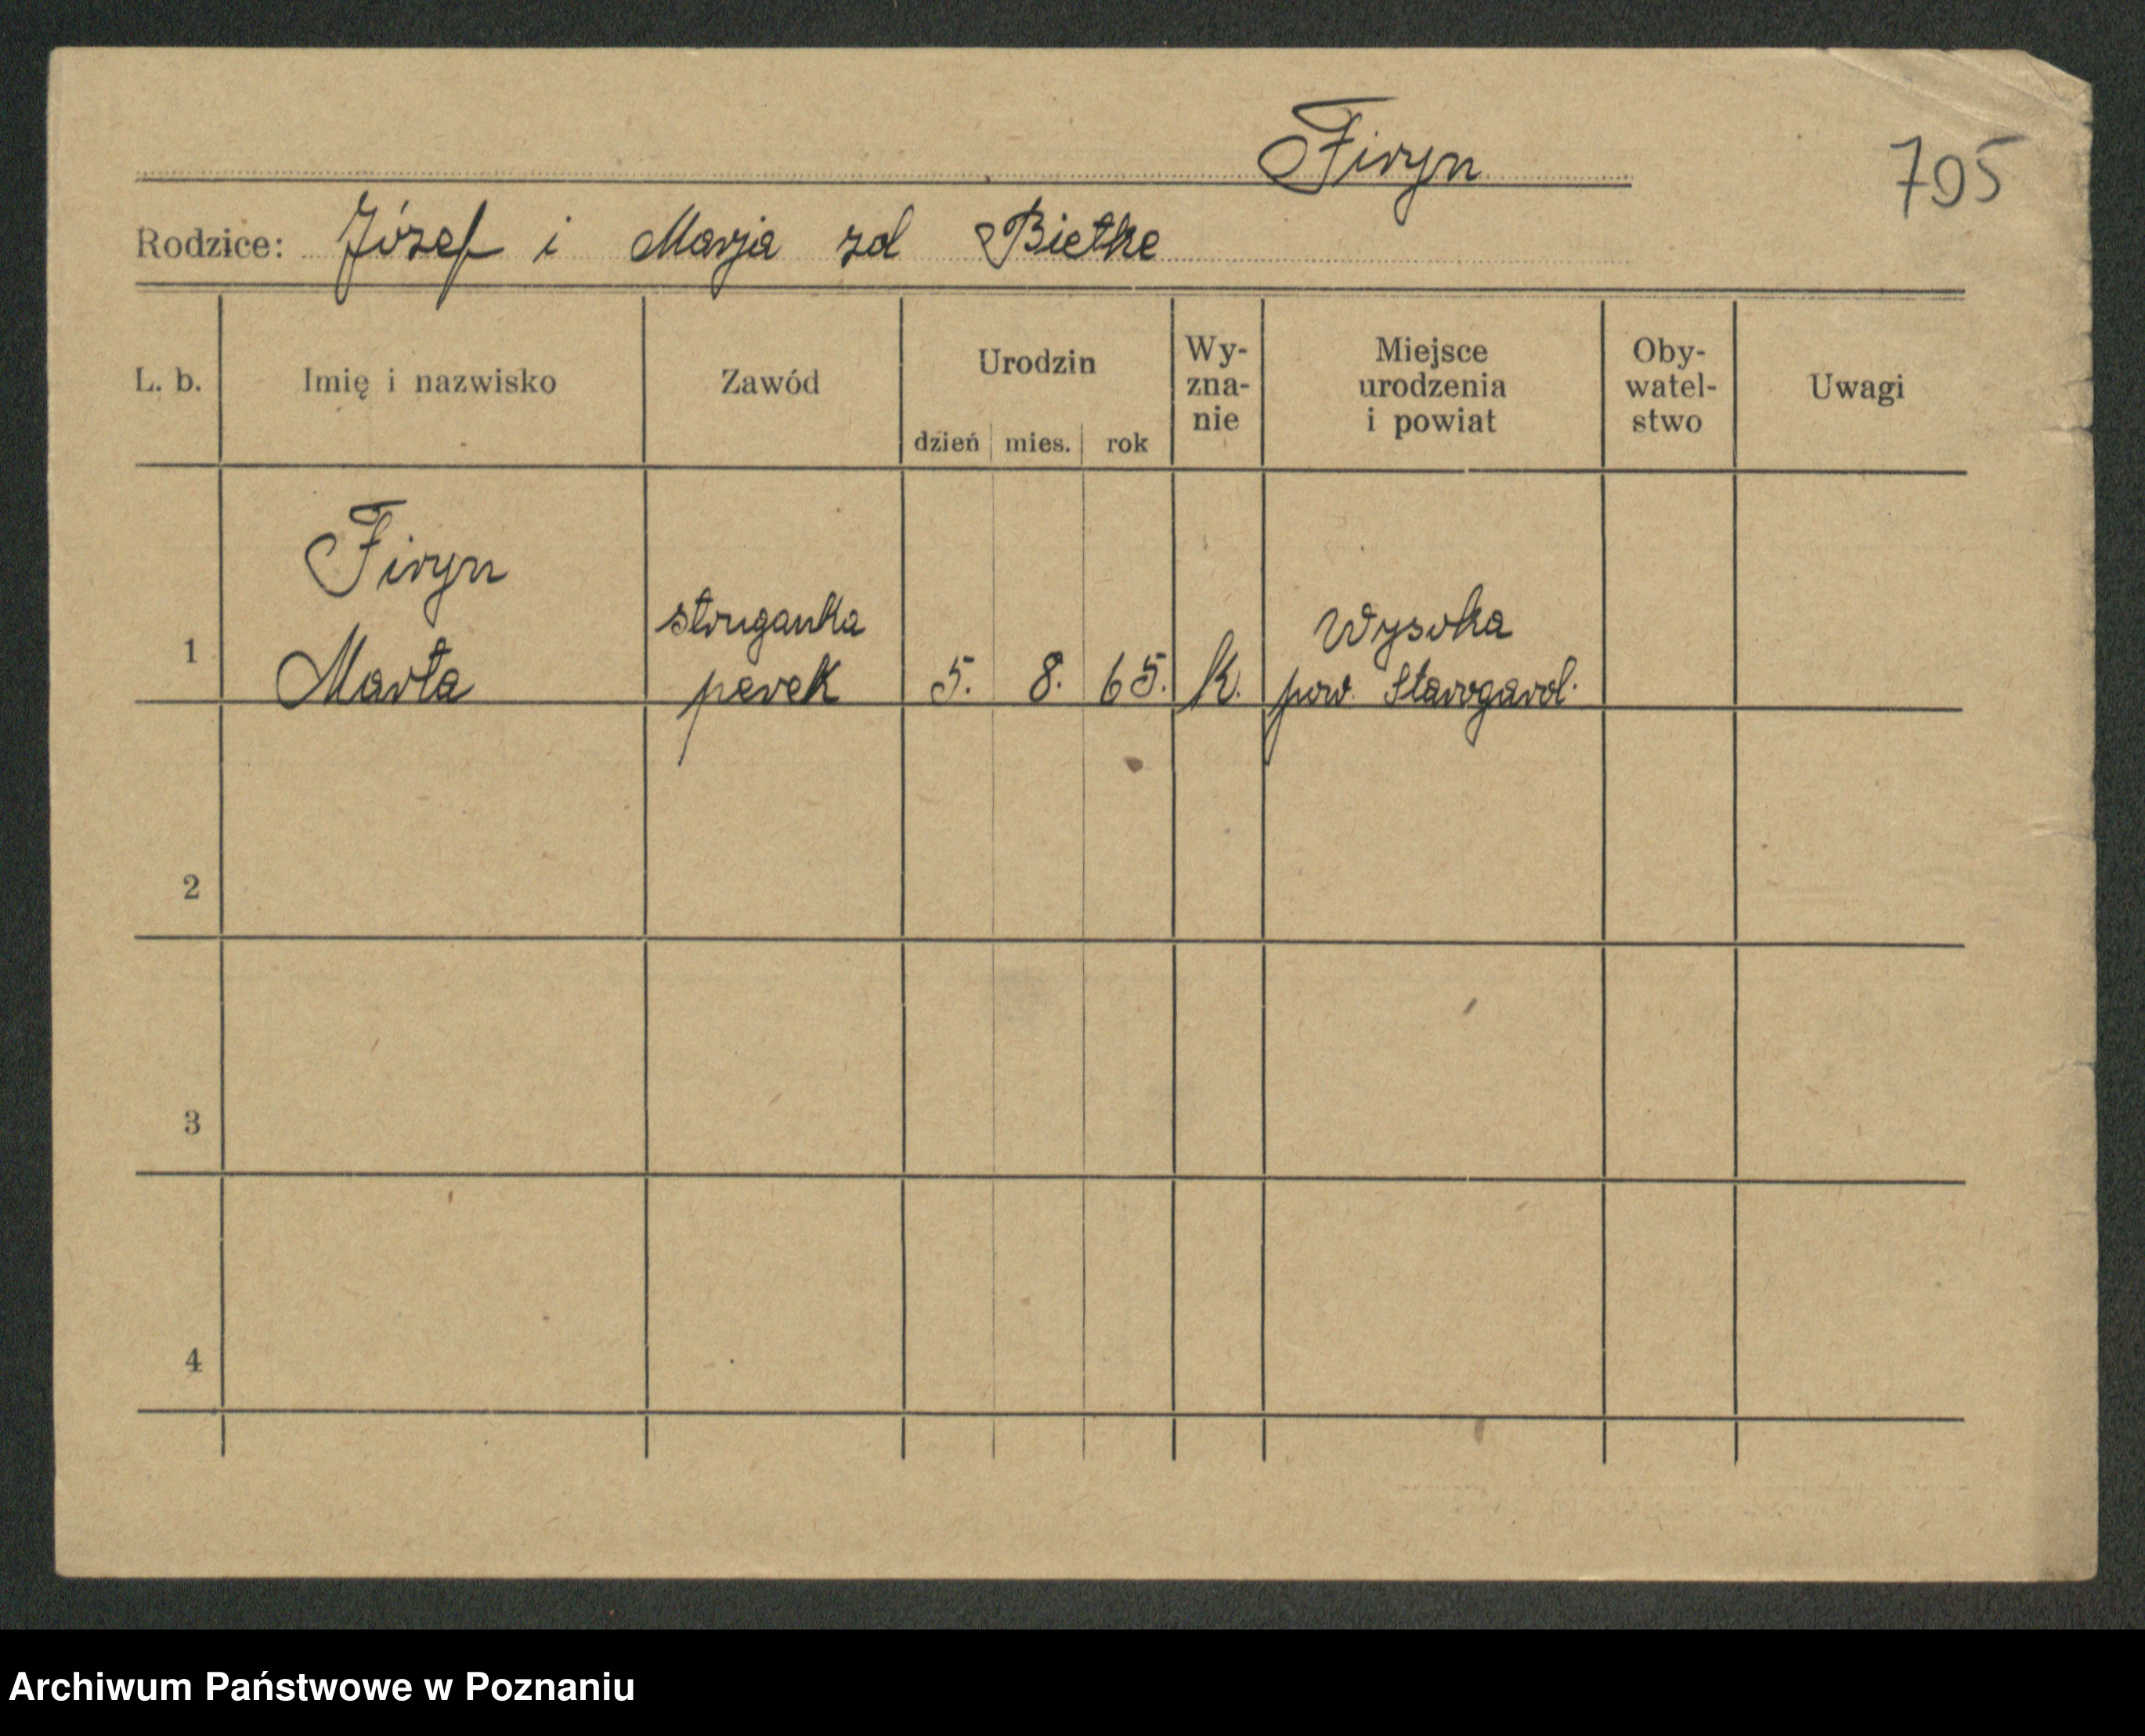 Firyn
705
Rodzice: Józef i Marja zd Bietke
L. b. Imię i nazwisko Zawód Urodzin dzień mies. rok Wy-zna-nie Miejsce urodzenia i powiat Oby-watel-stwo Uwagi
Firyn
struganka Wysoka
1 Marta perek 5. 8. 65. K. pow. Starogard.
2
3
4
Archiwum Państwowe w Poznaniu